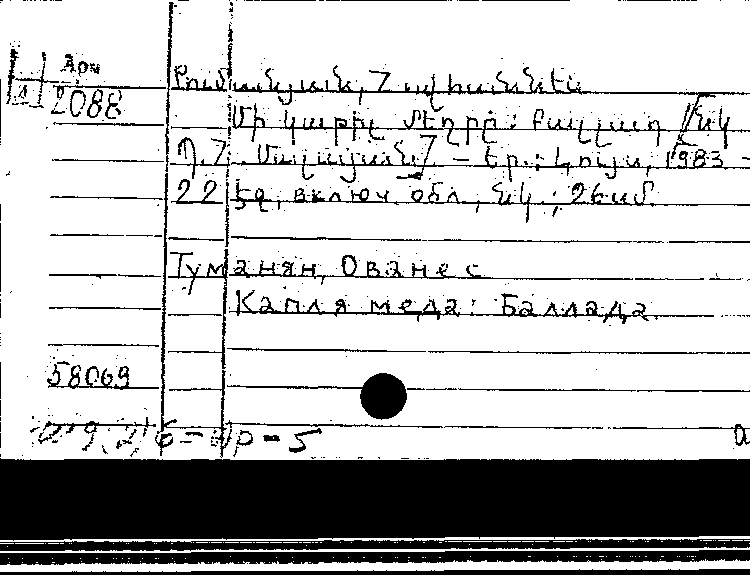 Арм
1
2088
Թումանյան, Հովհաննես
Մի կաթիլ մեղրը: Բալլադ /Նկ
Պ.Հ. – Եր.: Լույս, 1983 –
22 էջ, включ обл., նկ.; 26սմ.
Туманян, Ованес
Капля меда: Баллада.
58069